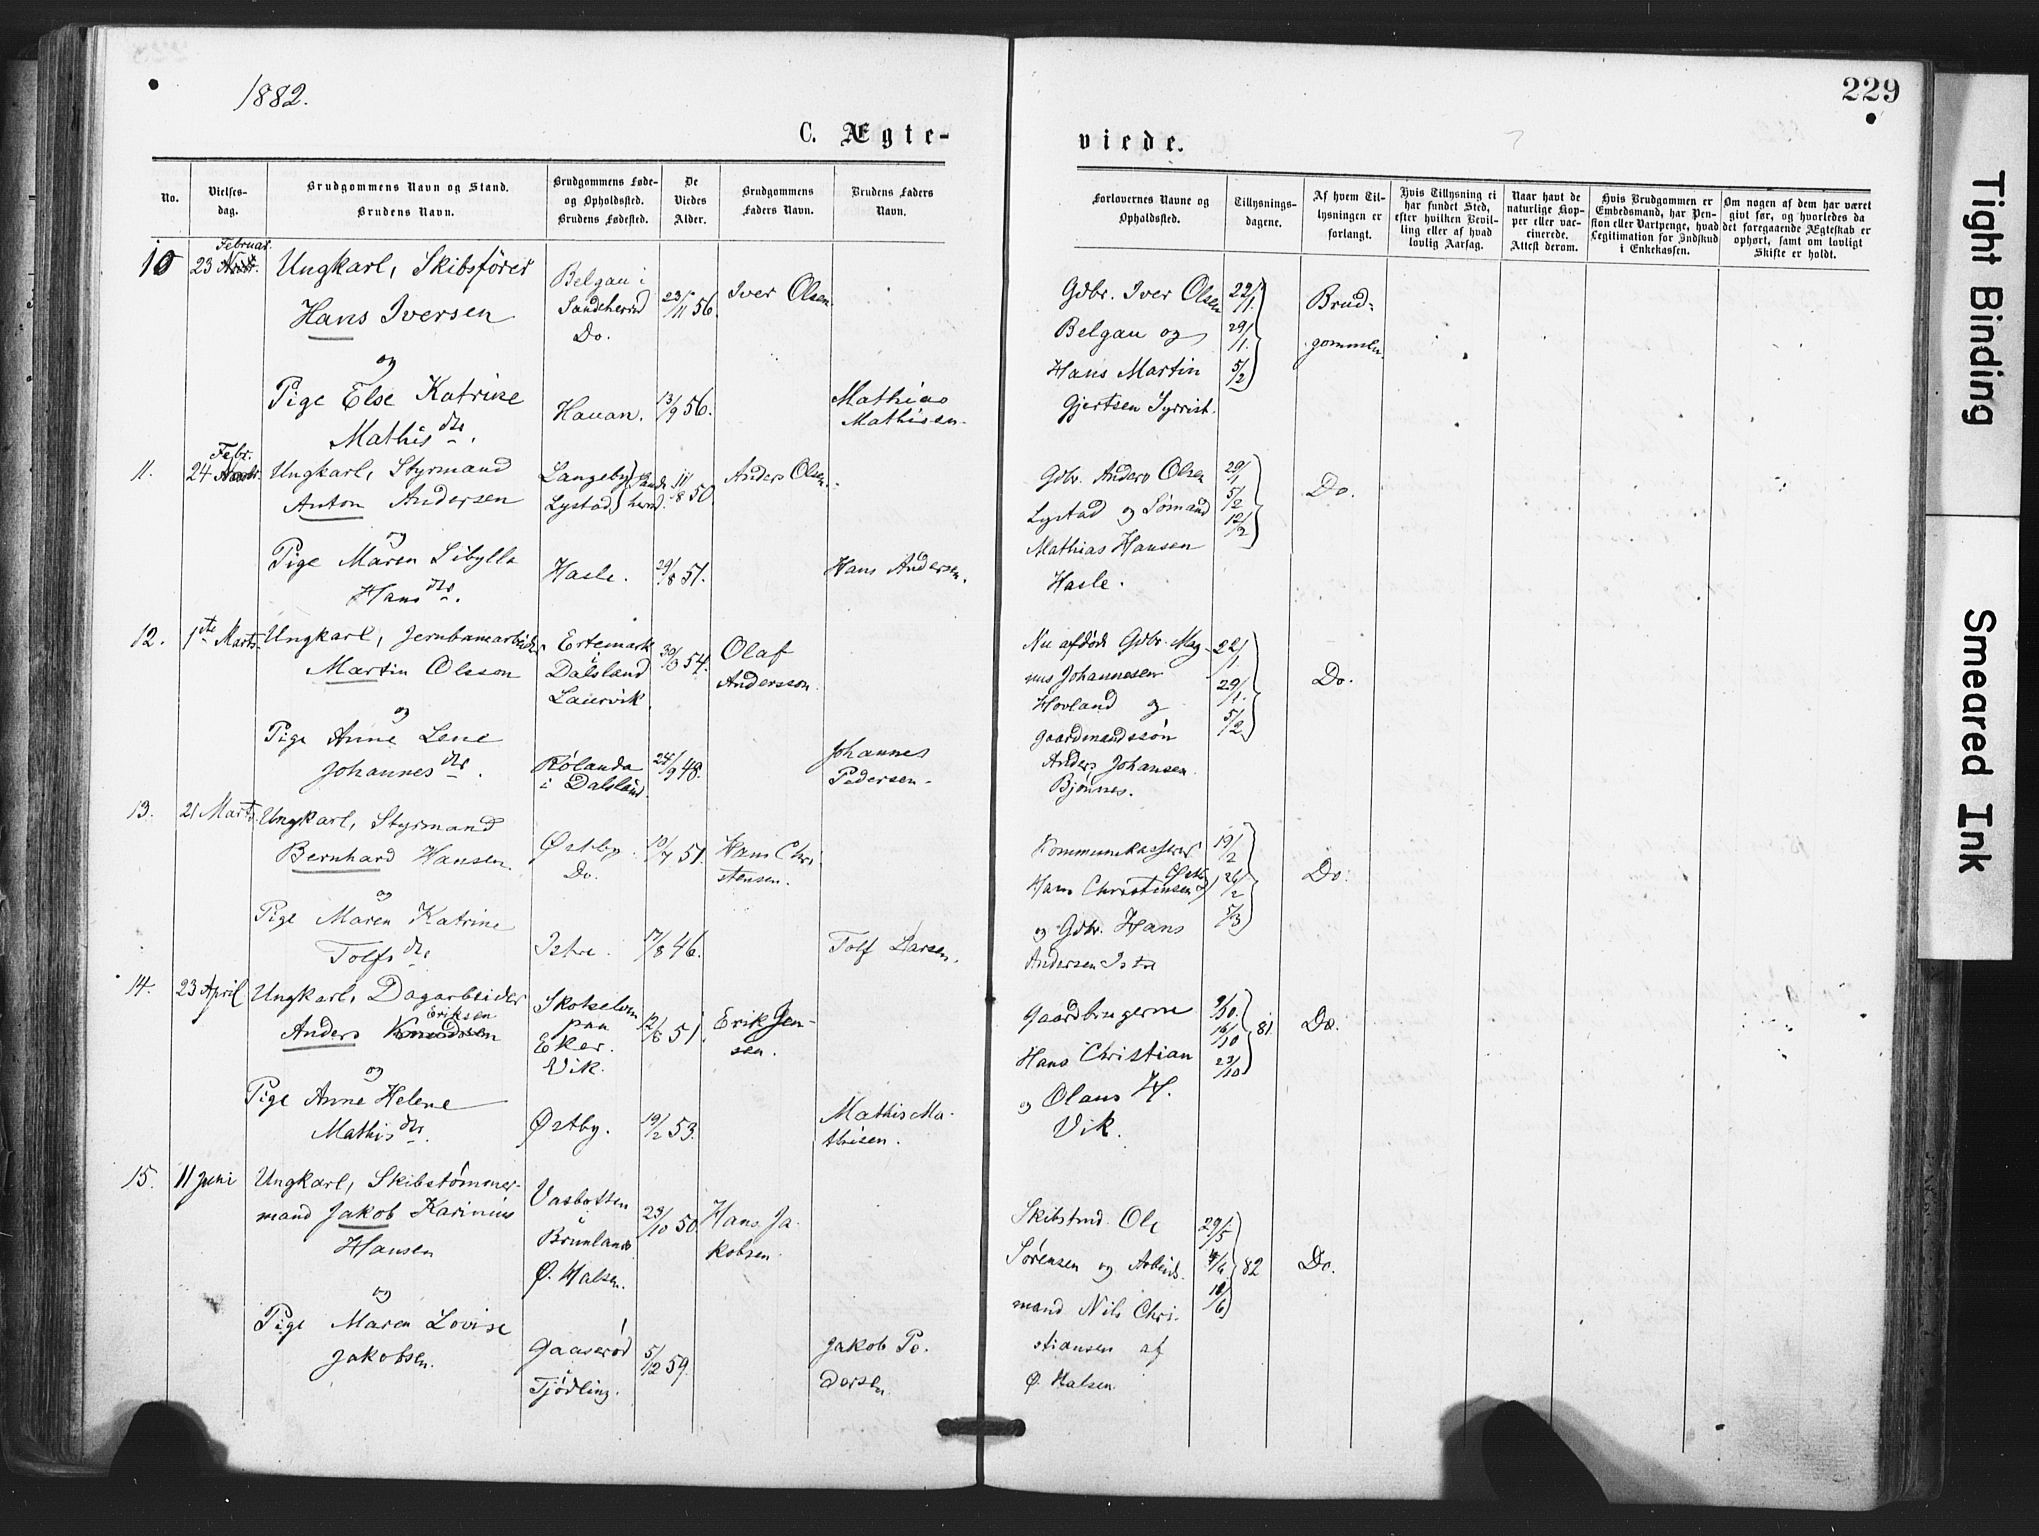 1882.
229
C. Ægte-
viede.
No.
Vielses-
dag.
Brudgommens Navn og Stand.
Brudens Navn.
Brudgommens Føde-
og Opholdssted.
Brudens Fødested.
De
Viedes
Alder.
Brudgommens
Faders Navn.
Brudens Faders
Navn.
Forlovernes Navne og
Opholdssted.
Tillysnings-
dagene.
Af hvem Til-
lysningen er
forlangt.
Hvis Tillysning ei
har fundet Sted,
efter hvilken Bevil-
ling eller af hvad
lovlig Aarsag.
Naar havt de
naturlige Kop-
per eller vac-
cinerede.
Attest derom.
Hvis Brudgommen er
Embedsmand, har Pen-
sion eller Vartpenge, hvad
Legitimation for Indskud
i Enkekassen.
Om nogen af dem har været
givt før, og hvorledes da
det foregaaende Ægteskab er
ophørt, samt om lovligt
Skifte er holdt.
10
Februar.
23
Ungkarl, Skibsfører
Hans Iversen
og
Pige Else Katrine
Mathisdtr.
Belgau i
Sandeherred
Do.
Hauan.
23/11 56.
13/9 56.
Iver Olsen
Mathias
Mathisen.
Gdbr. Iver Olsen
Belgau og
Hans Martin
Gjertsen
22/1.
29/1.
5/2
Brud-
gommen.
11.
Febr.
24
Ungkarl, Styrmand
Anton Andersen
og
Pige Maren Sibylla
Hansdtr.
Langeby Sande
Lystad herred.
Hasle.
11/8 50.
29/8 51.
Anders Olsen.
Hans Andersen.
Gdbr. Anders Olsen
Lystad og Sømand
Mathias Hansen
Hasle.
29/1
5/2
12/2
Do.
12.
1ste Marts
Ungkarl, Jernbanearbeider
Martin Olsson
og
Pige Anne Lene
Johannesdtr.
Ertemark
i
Dalsland
Laurvik.
Rølanda
i Dalsland.
30/3 54.
24/9 48.
Olaf
Andersson.
Johannes
Pedersen.
Nu afdøde Gdbr. Mag-
nus Johannesen
Hovland og
gaardmandssøn
Anders Johansen
Bjønnes.
22/1.
29/1.
5/2
Do.
13.
21 Marts
Ungkarl, Styrmand
Bernhard Hansen
og
Pige Maren Katrine
Tolfsdtr.
Østby.
Do.
Istre.
10/7 51.
17/8 46.
Hans Chri
stensen.
Tolf Larsen.
Kommunekasserer
Hans Christensen Østby
og Gdbr. Hans
Andersen Istre
19/2
26/2
5/3
Do.
14.
23 April
Ungkarl, Dagarbeider
Eriksen
Anders Knudsen
og
Pige Anne Helene
Mathisdtr.
Skotselven
paa
Eker.
Vik.
Østby.
12/8 51.
19/2 53.
Erik Jen-
sen.
Mathis Ma-
thisen.
Gaardbrugerne
Hans Christian
og Olaus H.
Vik.
9/10.
16/10
23/10
81.
Do.
15.
11 Juni
Ungkarl, Skibstømmer-
mand Jakob Karinius
Hansen
og
Pige Maren Lovise
Jakobsen.
Vasbotten
i
Brunlanes
Ø. Halsen.
Gaaserød
i
Tjødling.
23/10 50.
5/12 59.
Hans Ja-
kobsen.
Jakob Pe-
dersen.
Skibstmd. Ole
Sørensen og Arbeids-
mand Nils Chri-
stiansen af
Ø. Halsen
29/5
4/6
82
Do.
Tight Binding
Smeared Ink